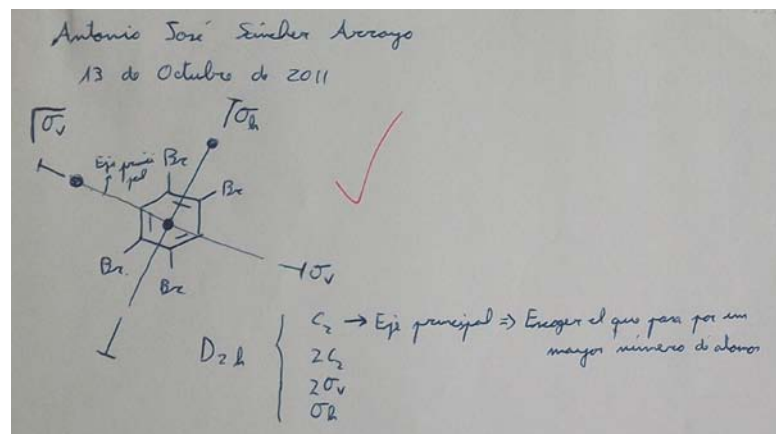 Antonio José Sánchez Arroyo
13 de Octubre de 2011
σv
σh
Eje princi
pal
Br
Br
Br.
Br
σv
D2h
C2 → Eje principal ⇒ Escoger el que pasa por un
mayor número de átomos
2C2
2σv
σh